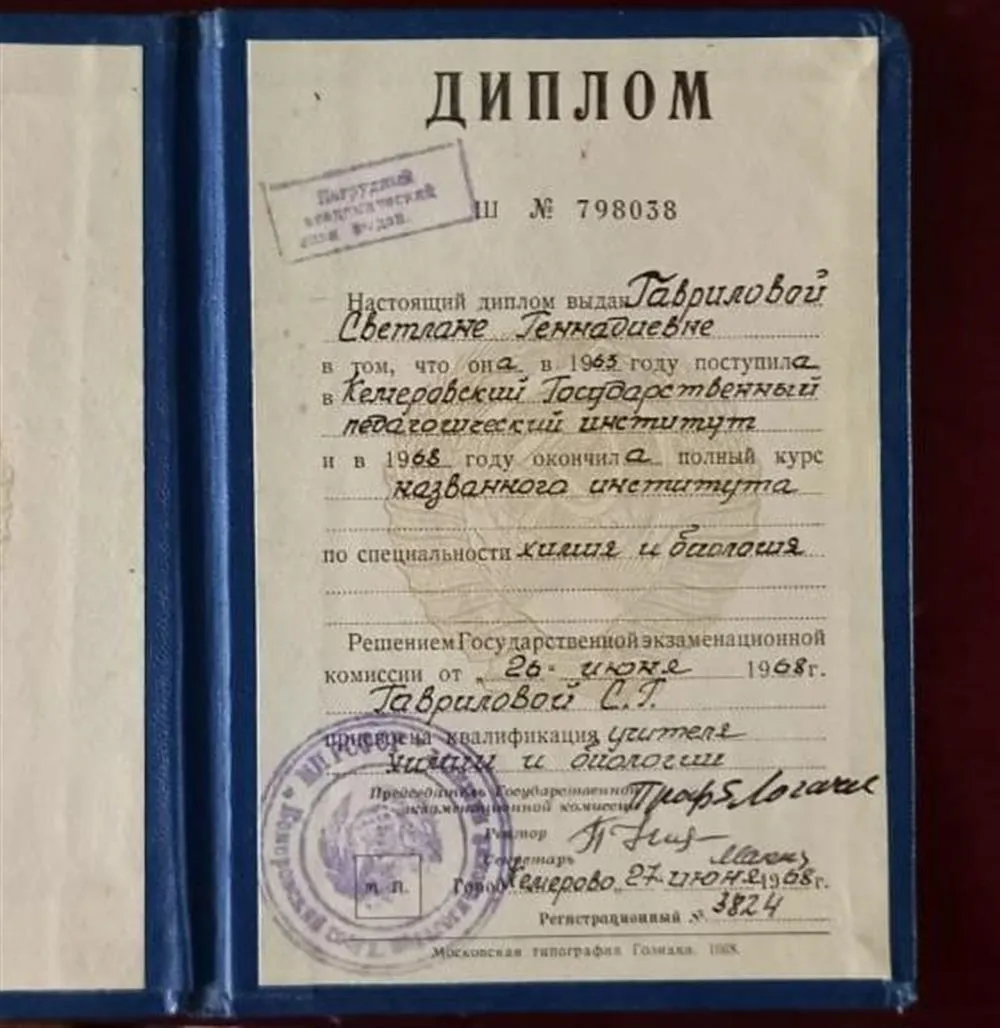 ДИПЛОМ
Нагрудный
академический
знак выдан.
Ш № 798038
Настоящий диплом выдан Гавриловой
Светлане Геннадиевне
в том, что она в 1963 году поступила
в Кемеровский Государственный
педагогический институт
и в 1968 году окончила полный курс
названного института
по специальности химия и биология
Решением Государственной экзаменационной
комиссии от „ 26 " июня 1968 г.
Гавриловой С.Г.
присвоена квалификация учителя
химии и биологии
Председатель Государственной
экзаменационной комиссии Проф
Ректор
Секретарь
М. П.
Город Кемерово „ 27 " июня 1968 г.
Регистрационный № 3824
Московская типография Гознака. 1968.